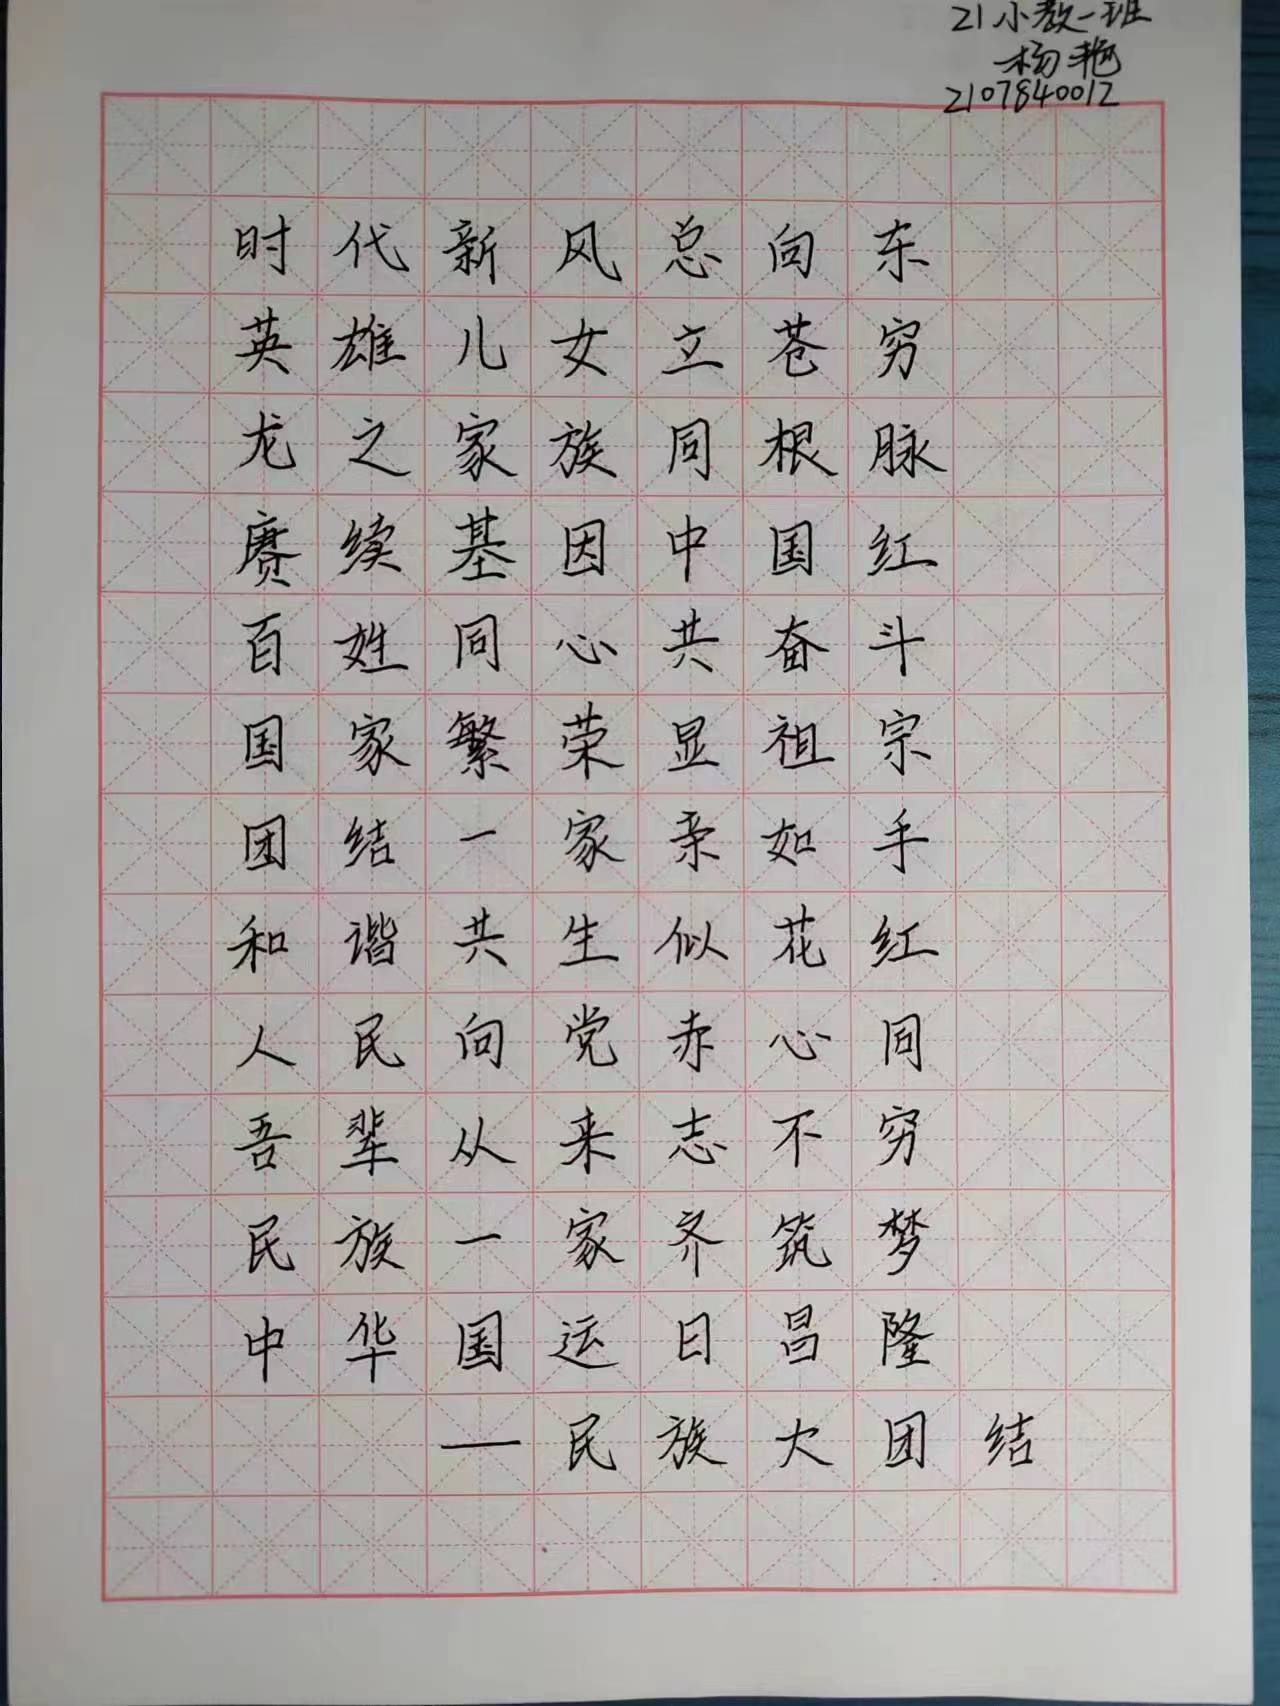 21小教一班
杨艳
2107840012
时代新风总向东
英雄儿女立苍穷
龙之家族同根脉
赓续基因中国红
百姓同心共奋斗
国家繁荣显祖宗
团结一家亲如手
和谐共生似花红
人民向党赤心同
吾辈从来志不穷
民族一家齐筑梦
中华国运日昌隆
——民族大团结